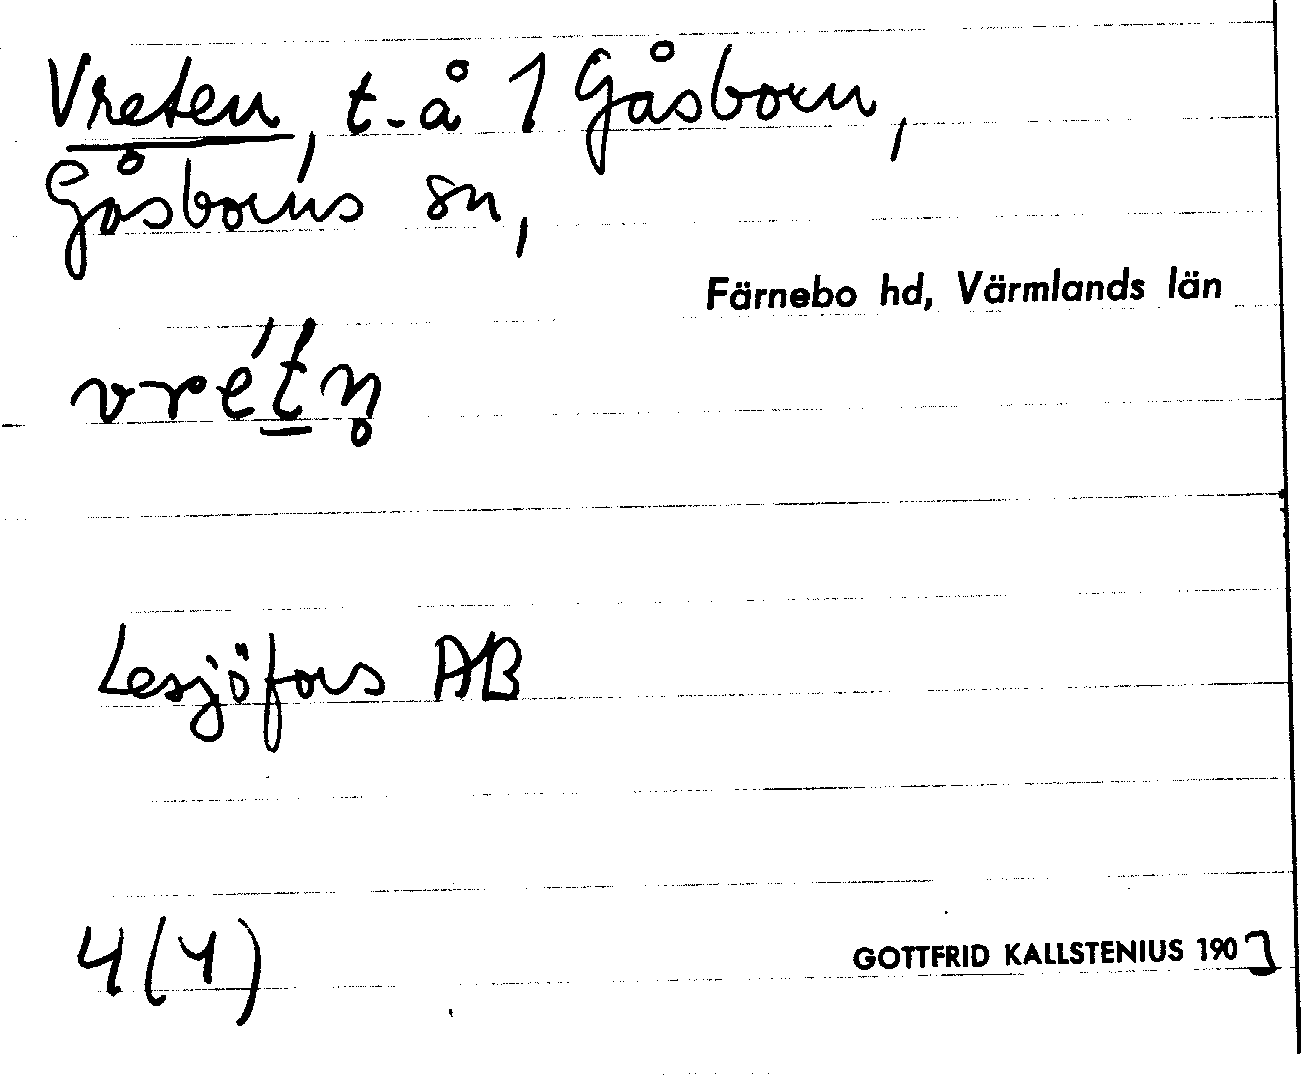 Vreten, t. å 1 Gåsborn,
Gåsborns sn,
Färnebo hd, Värmlands län
vrét́n̥
Lesjöfors AB
4(4)
GOTTFRID KALLSTENIUS 1907